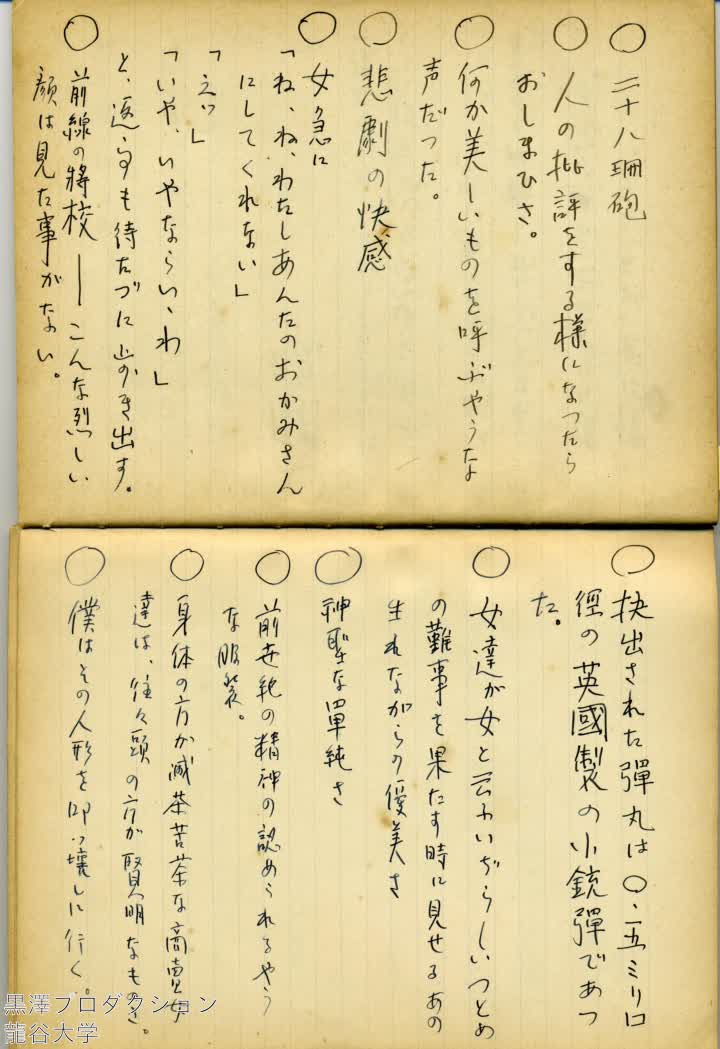 〇 二十八珊砲
〇 人の批評をする様になつたら
おしまひさ。
〇 何か美しいものを呼ぶやうな
声だつた。
〇 悲劇の快感
〇 女急に
「ね、ね、わたしあんたのおかみさん
にしてくれない」
「えッ」
「いや、いやならいゝわ」
と、返事も待たづに歩き出す。
〇 前線の將校 ── こんな烈しい
顔は見た事がない。
〇 抉出された彈丸は〇・五ミリ口
徑の英國製の小銃彈であつ
た。
〇 女達が女と云ふいぢらしいつとめ
の難事を果たす時に見せるあの
生れながらの優美さ
〇 神聖な單純さ
〇 前世紀の精神の認められるやう
な服装。
〇 身体の方が滅茶苦茶な商賣女
達は、往々頭の方が賢明なものさ。
〇 僕はその人形を叩っ壊しに行く。
黒澤プロダクション
龍谷大学